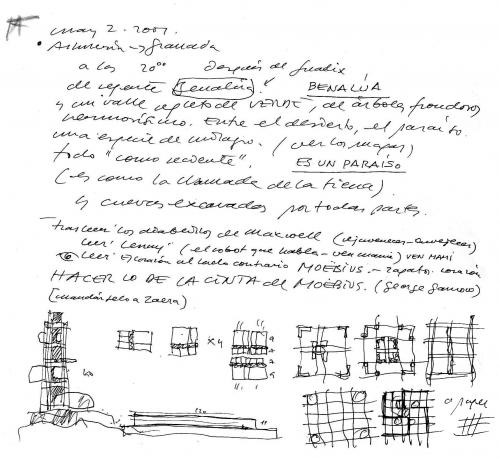 may 2. 2001.
Almería → Granada
a las 20⁰⁰ Después de Guadix
de repente Benalúa. BENALÚA
y un valle repleto de VERDE, de árboles frondosos
hermosísimo. Entre el desierto, el paraíso.
una especie de milagro. (ver los mapas)
todo "como recuerdo". ES UN PARAÍSO
(es como la llamada de la tierra)
y cuevas excavadas por todas partes.
tras leer los diablillos de Maxwell (rejuvenecer-envejecer)
leer Lenny (el robot que habla - ven mami) VEN MAMI
leer al lado contrario MOËBIUS. - zapato. corazón
HACER LO DE LA CINTA de MOËBIUS. (George Gamow)
[mandárselo a Zaera)
x 4
40
120
a papel